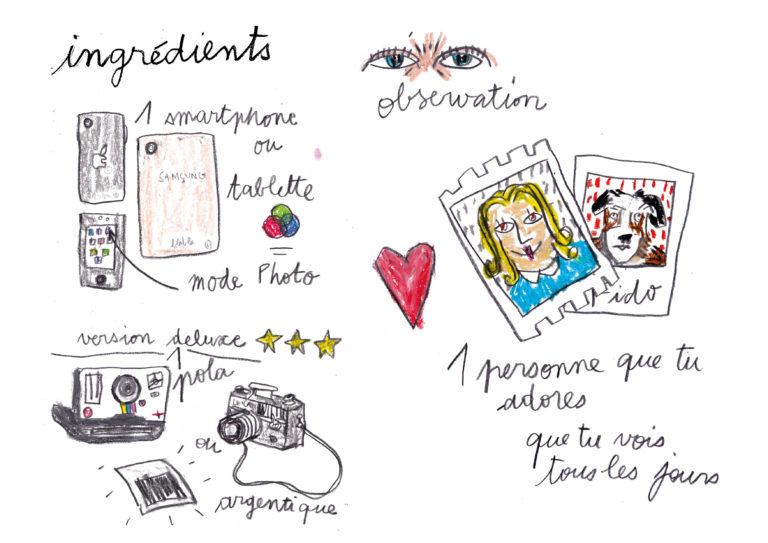 ingrédients
1 smartphone
ou
tablette
SAMSUNG
=
mode Photo
version deluxe
1 pola
ou
argentique
observation
Fido
1 personne que tu
adores
que tu vois
tous les jours